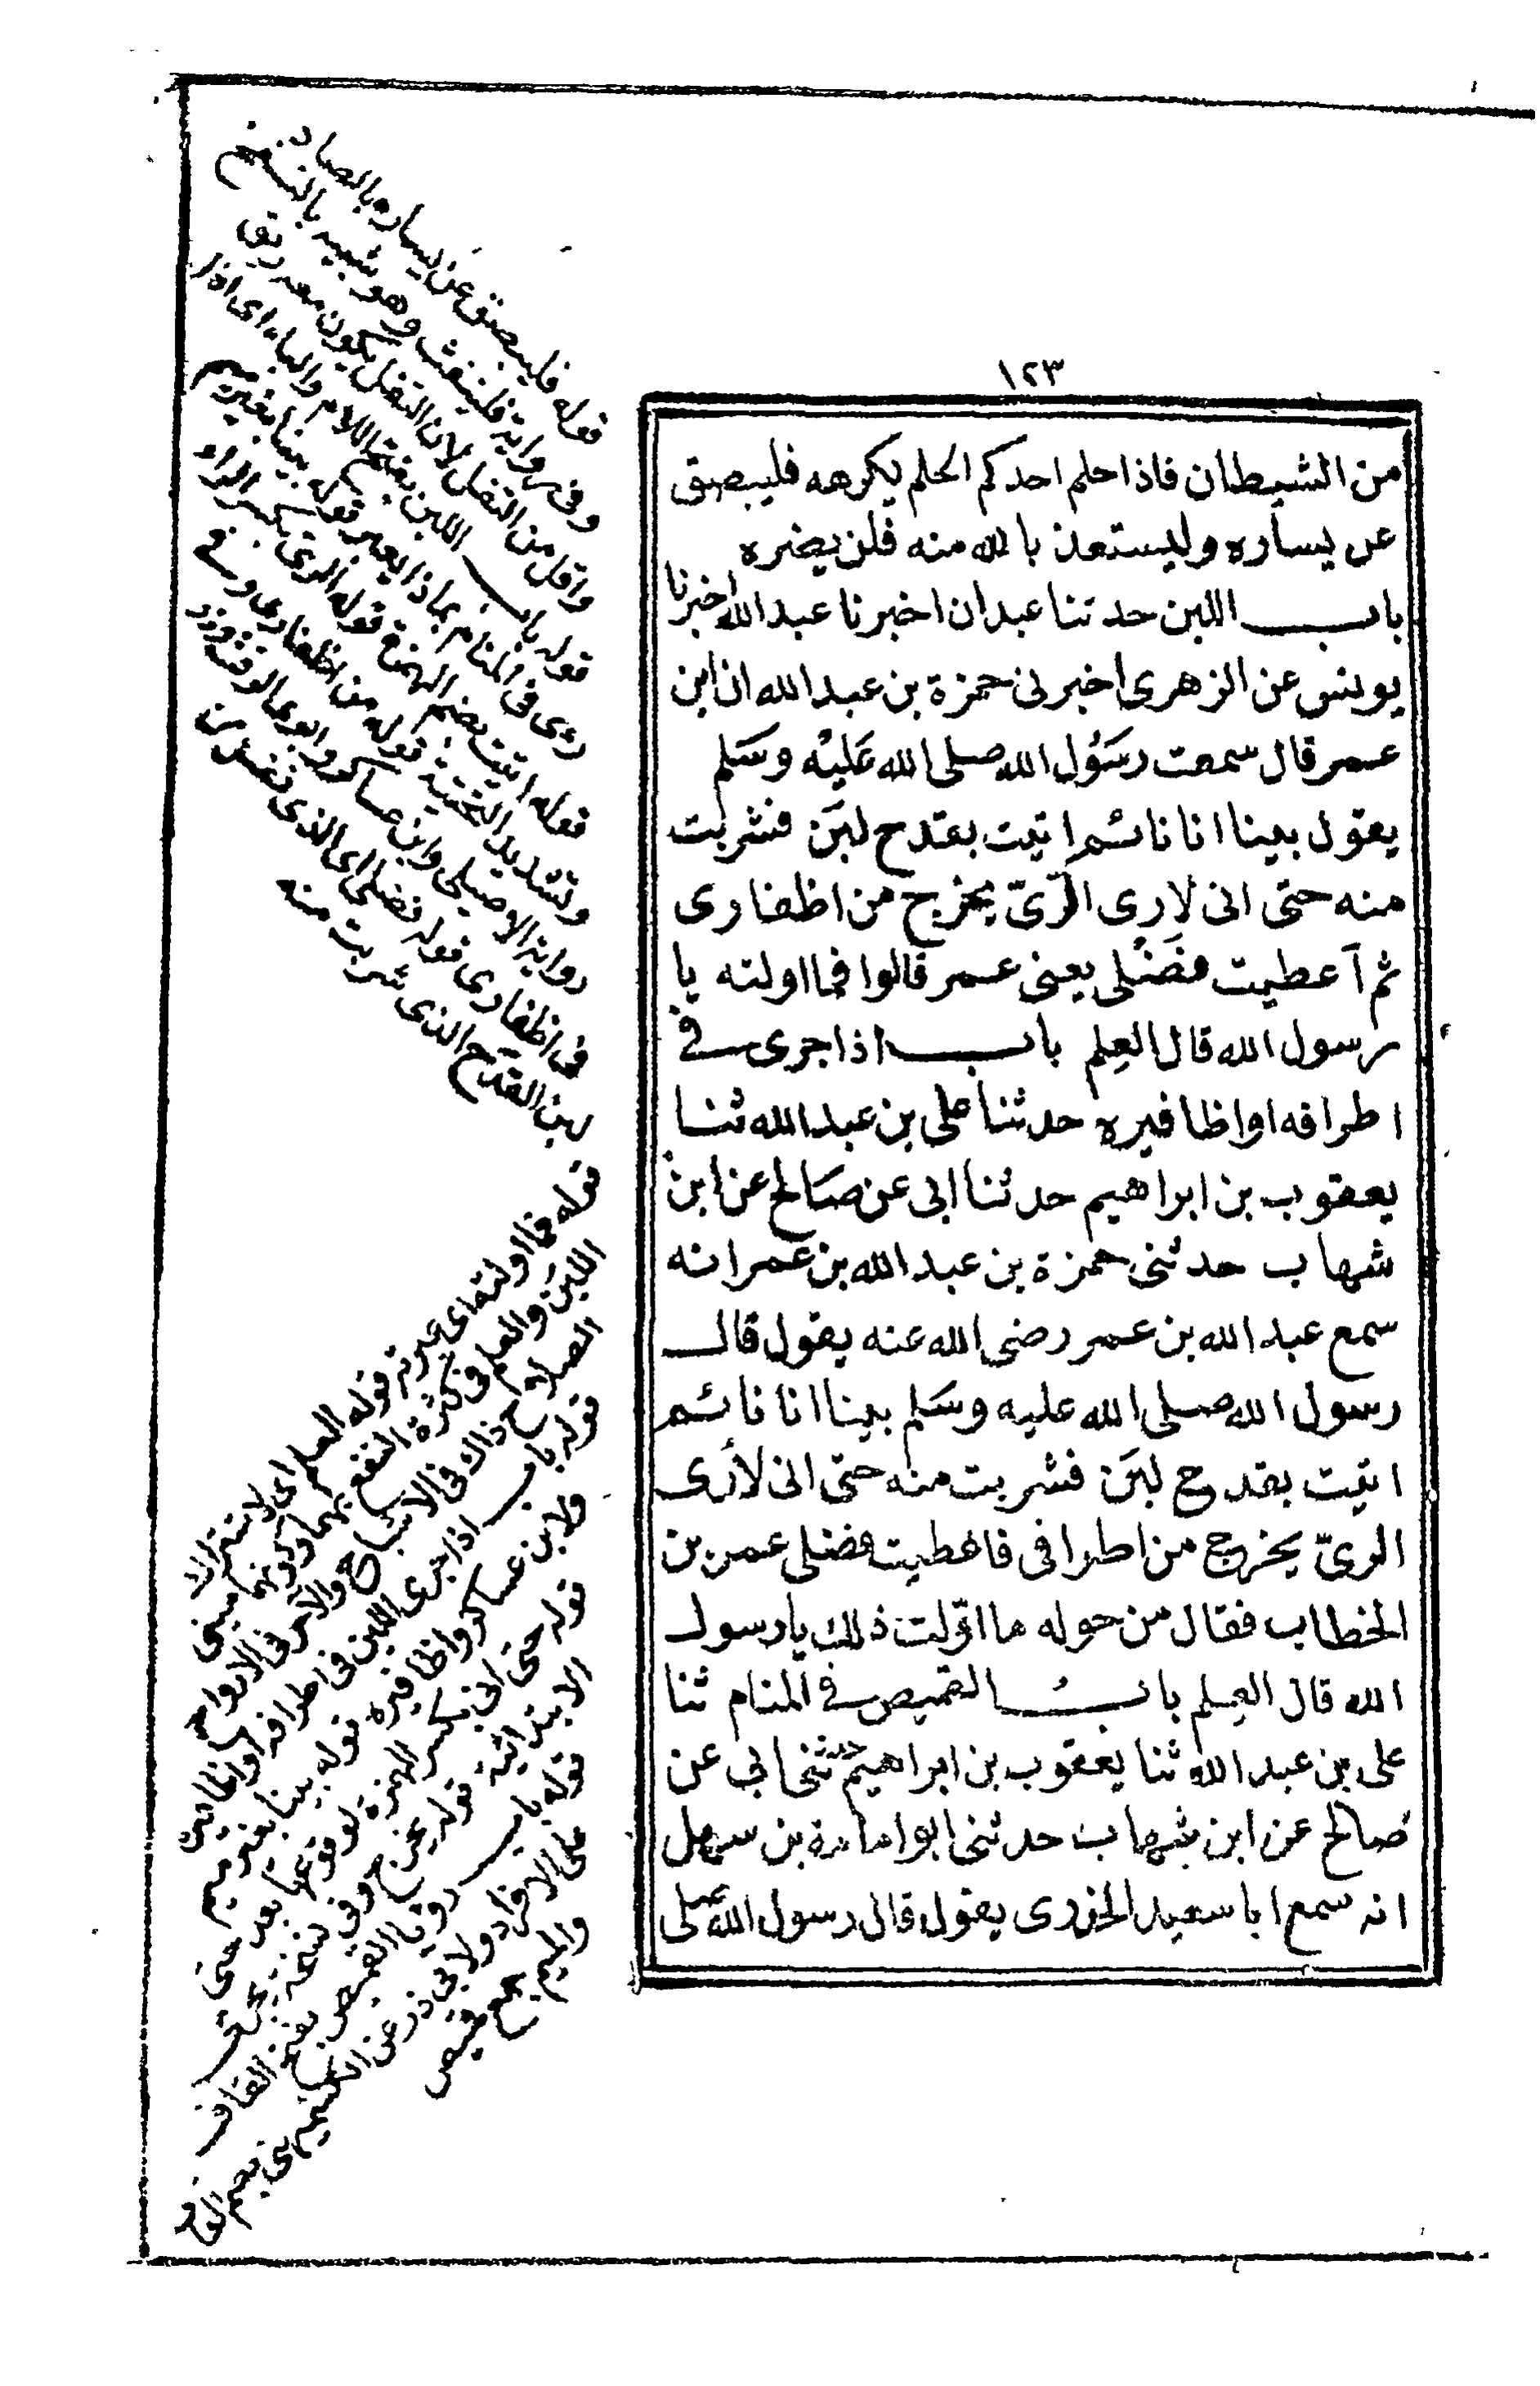 ١٢٣
من الشيطان فاذا حلم احدكم الحلم يكرهه فليبصق
عن يساره وليستعذ بالله منه فلن يضره
باب اللبن حدثنا عبدان اخبرنا عبد الله اخبرنا
يونس عن الزهرى اخبرنى حمزة بن عبد الله ان ابن
عمر قال سمعت رسَوُل الله صلى الله عَليْه وسَلم
يعقول بينا انا نائم اتيت بقدح لبَن فشربت
منه حتى انى لارى الرّىّ يخرج من اظفارى
ثم آعطيت فضَنْلى يعنى عمر قالوا فما اولته يا
رسول الله قال العِلم باب اذا جرى فى
اطرافه او اظافيره حدثنا على بن عبد الله ثنا
يعقوب بن ابراهيم حدثنا ابى عن صَالح عن ابن
شهاب حدثنى حمزة بن عبد الله بن عمر انه
سمع عبد الله بن عمر رضى الله عنه يقول قال
رسول الله صلى الله عليه وسَلم بينا انا نائم
اتيت بقدح لبَن فشربت منه حتى انى لأرى
الرىّ يخرج من اطرافى فاعطيت فضلى عمر بن
الخطاب فقال من حوله ما اوّلت ذلك يا رسول
الله قال العِلم باب القميص فى المنام ثنا
على بن عبد الله ثنا يعقوب بن ابراهيم حدثنى ابي عن
صالح عن ابن شهاب حدثنى ابو امامة بن سهل
انه سمع ابا سعيد الخدرى يقول قال رسول الله صلى
قوله فليبصق عن يساره بالصاد
وفى رواية فلينفث وهو شبيه بالنفخ
واقل من التفل لان التفل يكون معه ريق
قوله باب اللبن بفتح اللام والباء اى اذا
رؤى فى المنام بماذا يعبر قوله بينا بغير ميم
قوله اتيت بضم الهمزة قوله الرى بكسر الراء
وتشديد التحتية قوله من اظفارى وفى
رواية الاصيلى وابن عساكر وابى الوقت وذر
فى اظفارى قوله فضلى اى الذى فضل من
لبن القدح الذى شربت منه
قوله فما اولته اى عبرته قوله العلم اى لاشتراك
اللبن والعلم فى كثرة النفع بهما وكونهما سببى
الصلاح ذاك فى الاشباح والاخر فى الارواح
قوله باب اذا جرى اللبن فى اطرافه او اظافيره
ولابن عساكر واظافيره قوله بينا بغير ميم
قوله حتى انى بكسر الهمزة لوقوعها بعد حتى
الابتدائية قوله يخرج وفى نسخة يجرى
قوله باب رويا القميص بفتح القاف
على الافراد ولابى ذر عن الكشميهنى بضم القاف
والميم جمع قميص